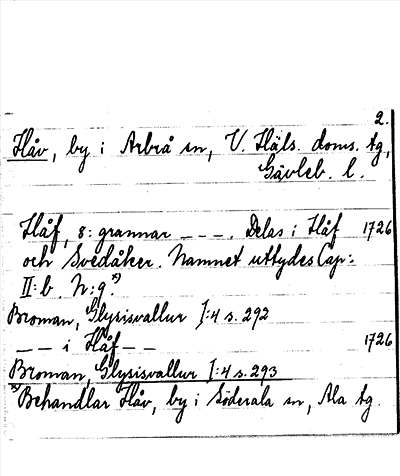 2.
Håv, by i Arbrå sn, V. Häls. doms. tg,
Gävleb. l.
Håf, 8: grannar _ _ _. Delas i Håf 1726
och Svedåker. Namnet uttydes Cap:
II: b. N: 9.*)
Broman, Glysisvallur I:4 s. 292
_ _ i Håf _ _ 1726
Broman, Glysisvallur I:4 s. 293
*) Behandlar Håv, by i Söderala sn, Ala tg.